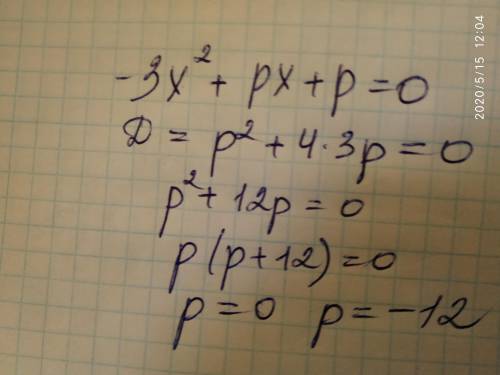 -3x² + px + p = 0
D = p² + 4·3p = 0
p² + 12p = 0
p(p+12) = 0
p = 0 p = -12
2020/5/15 12:04